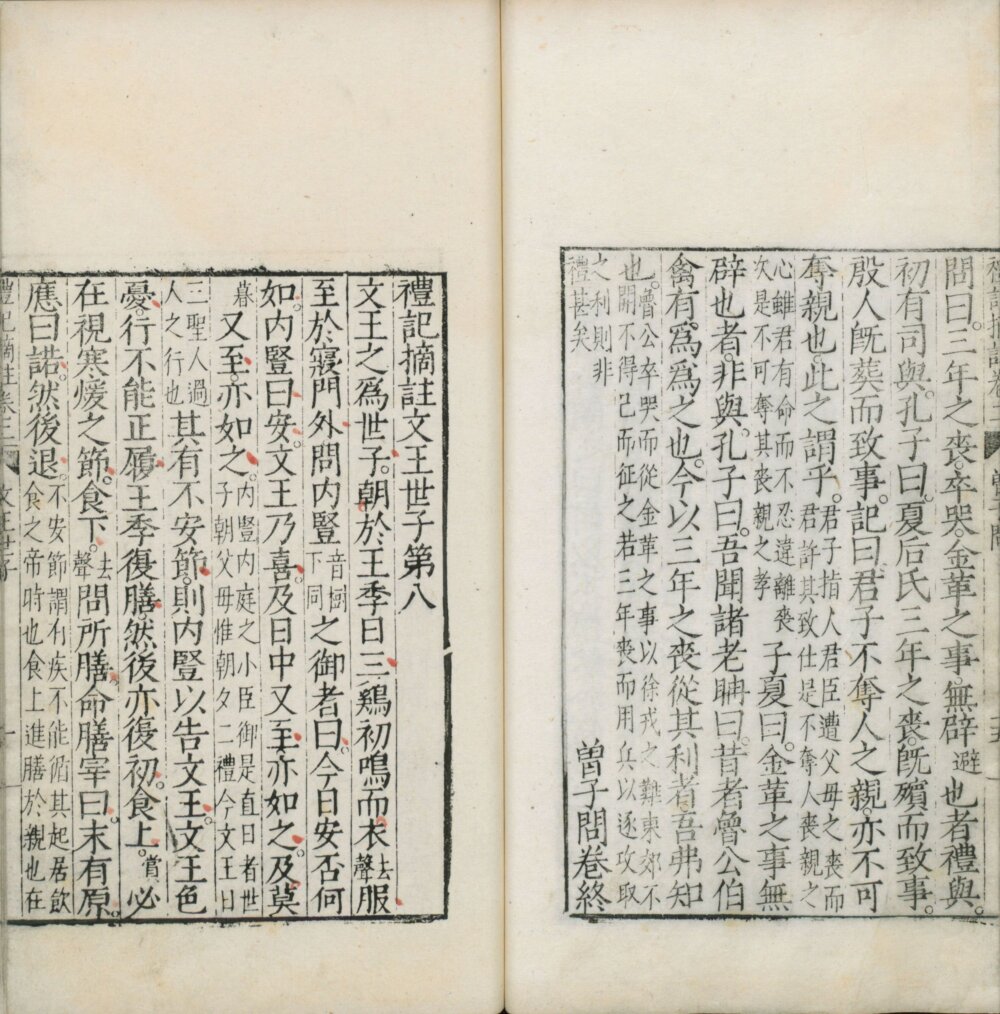 禮記摘註卷三 曾子問
問曰。三年之喪。卒哭。金革之事。無辟避也者。禮與。
初有司與。孔子曰。夏后氏三年之喪。既殯而致事。
殷人既葬而致事。記曰。君子不奪人之親。亦不可
奪親也。此之謂乎。君子指人君臣遭父母之喪而君許其致仕是不奪人喪親之
心雖君有命而不忍違離喪次是不可奪其喪親之孝子夏曰。金革之事無
辟也者。非與。孔子曰。吾聞諸老聃曰。昔者魯公伯
禽有。爲爲之也。今以三年之喪從其利者。吾弗知
也。魯公卒哭而從金革之事以徐戎之難東郊不開不得已而征之若三年喪而用兵以逐攻取
之利則非禮甚矣
曾子問卷終
禮記摘註文王世子第八
文王之爲世子。朝於王季日三。鷄初鳴而衣去聲服
至於寢門外。問內豎音樹下同之御者曰。今日安否何
如。內豎曰。安。文王乃喜。及日中又至。亦如之。及莫
暮又至。亦如之。內豎內庭之小臣御是直日者世子朝父母惟朝夕二禮今文王日
三聖人過人之行也其有不安節。則內豎以告文王。文王色
憂。行不能正履。王季復膳。然後亦復初。食上。賞必
在視寒煖之節。食下。去聲問所膳。命膳宰曰。末有原。
應曰諾。然後退。不安節謂有疾不能循其起居飲食之帝時也食上進膳於親也在
禮記摘註卷三 文王世子 一